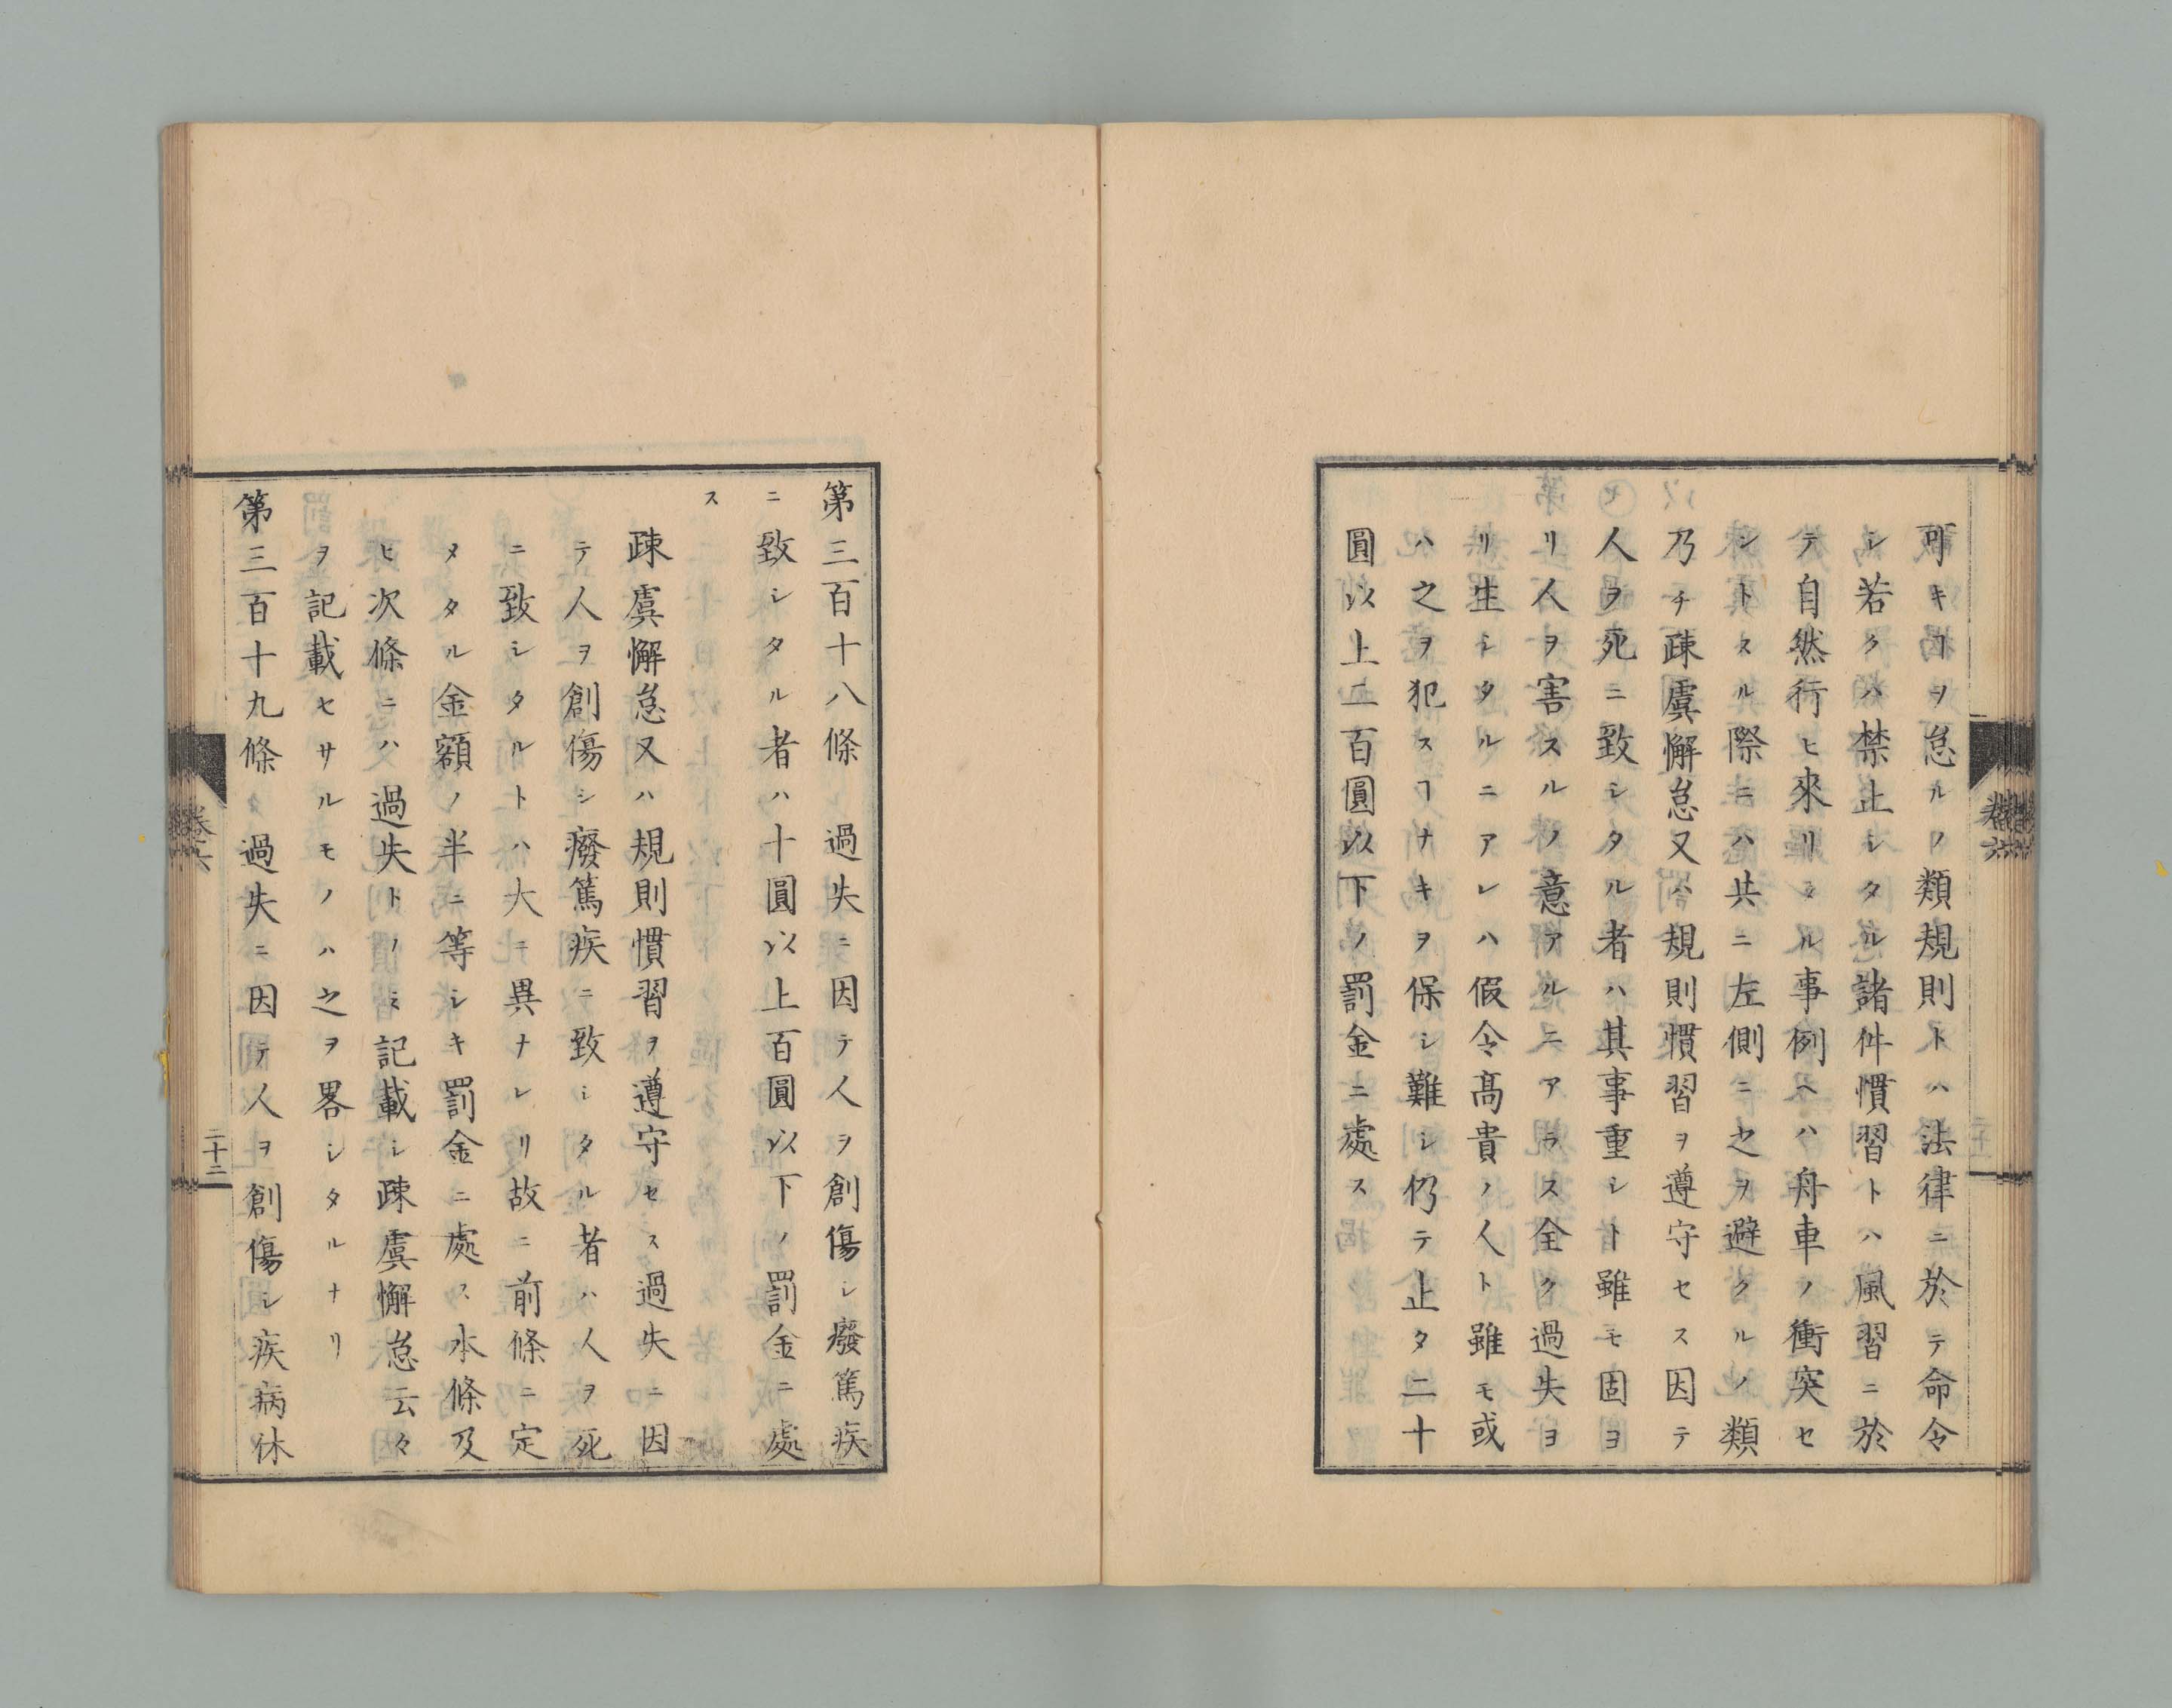 可キヿヲ怠ルノ類規則トハ法律ニ於テ命令
シ若クハ禁止シタル諸件慣習トハ風習ニ於
テ自然行ヒ來リタル事例ヘハ舟車ノ衝突セ
ントスル際ニハ共ニ左側ニ之ヲ避クルノ類
乃チ疎虞懈怠又ハ規則慣習ヲ遵守セス因テ
人ヲ死ニ致シタル者ハ其事重シト雖モ固ヨ
リ人ヲ害スルノ意アルニアラス全ク過失ヨ
リ生シタルニアレハ假令高貴ノ人ト雖モ或
ハ之ヲ犯スヿナキヲ保シ難シ仍テ止タ二十
圓以上二百圓以下ノ罰金ニ處ス
卷六
第三百十八條 過失ニ因テ人ヲ創傷シ癈篤疾
ニ致シタル者ハ十圓以上百圓以下ノ罰金ニ處
ス
疎虞懈怠又ハ規則慣習ヲ遵守セス過失ニ因
テ人ヲ創傷シ癈篤疾ニ致シタル者ハ人ヲ死
ニ致シタルトハ大ニ異ナレリ故ニ前條ニ定
メタル金額ノ半ニ等シキ罰金ニ處ス本條及
ヒ次條ニハ過失トノミ記載シ疎虞懈怠云々
ヲ記載セサルモノハ之ヲ畧シタルナリ
第三百十九條 過失ニ因テ人ヲ創傷シ疾病休
卷六
二十二